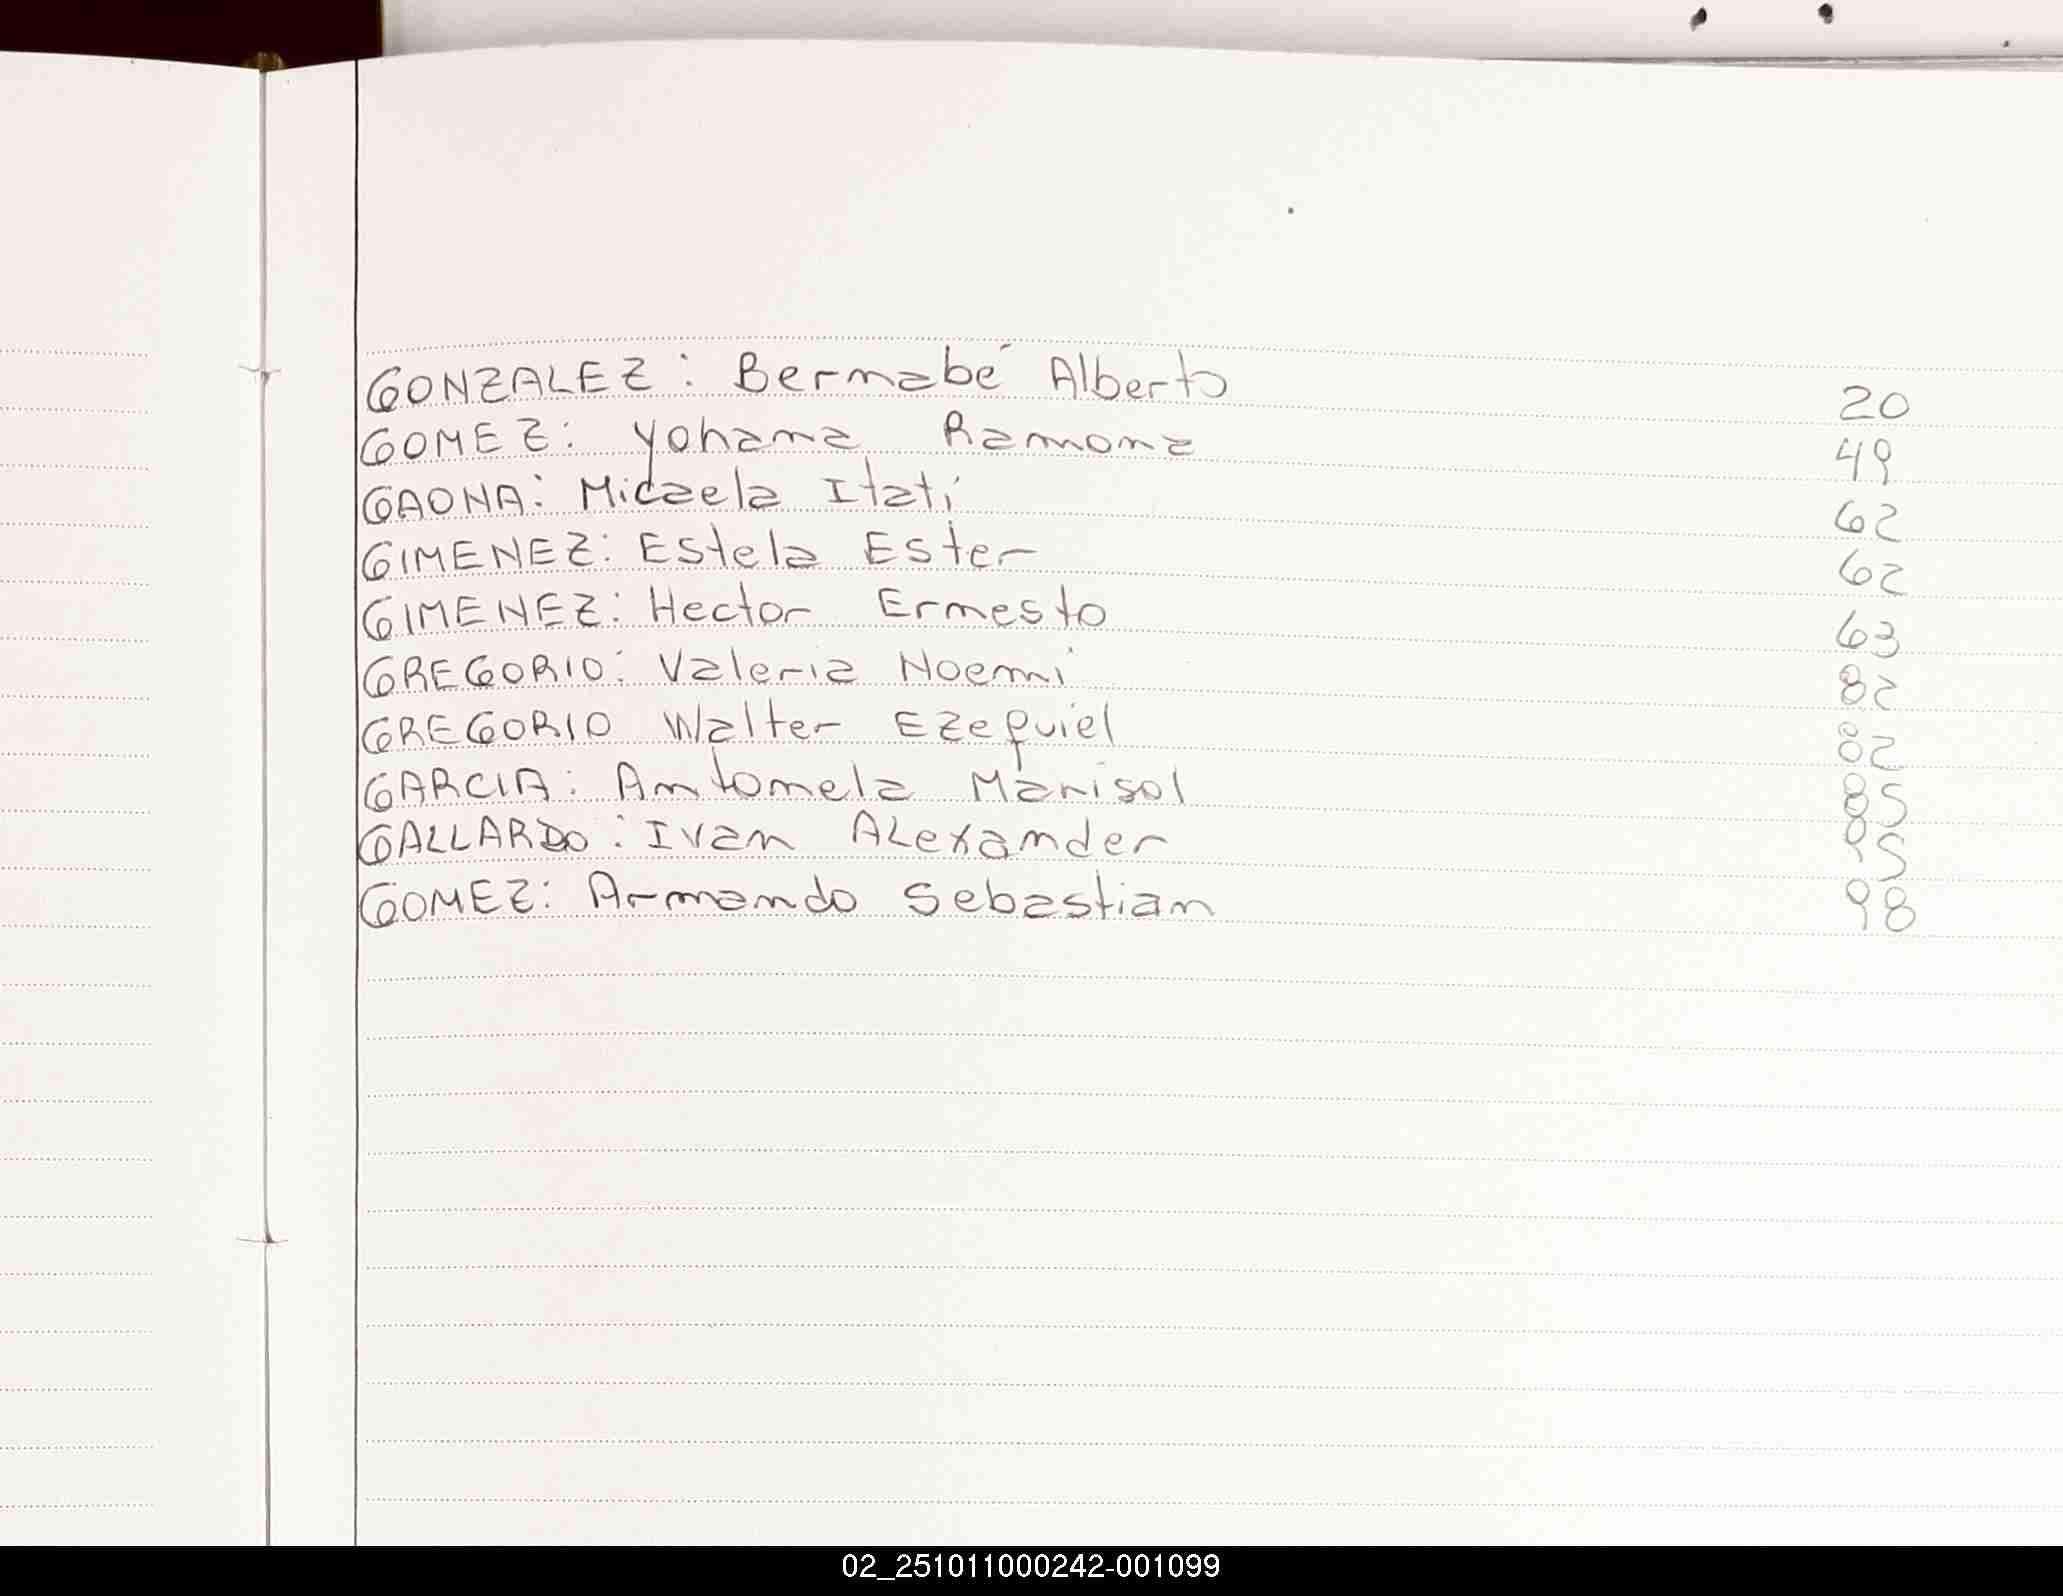 GONZALEZ: Bernabé Alberto 20
GOMEZ: Yohana Ramona 49
GAONA: Micaela Itatí 62
GIMENEZ: Estela Ester 62
GIMENEZ: Hector Ernesto 63
GREGORIO: Valeria Noemi 82
GREGORIO Walter Ezequiel 82
GARCIA: Antonela Marisol 85
GALLARDO: Ivan ALexander 95
GOMEZ: Armando Sebastian 98
02_251011000242-001099